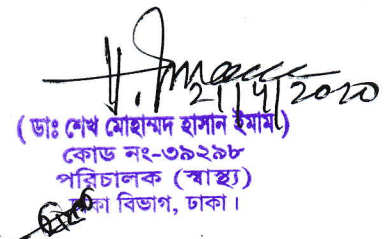 21/4/2020
( ডাঃ শেখ মোহাম্মদ হাসান ইমাম )
কোড নং-৩৯২৯৮
পরিচালক (স্বাস্থ্য)
ঢাকা বিভাগ, ঢাকা।